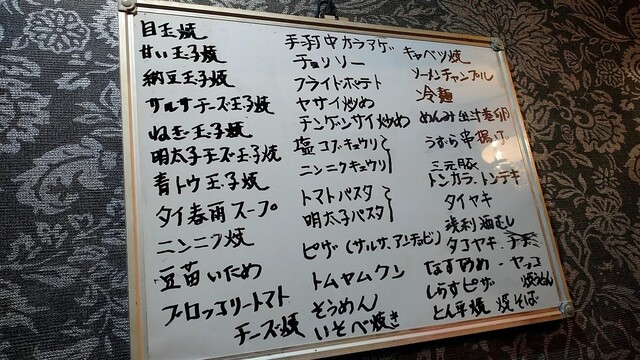 目玉焼
甘い玉子焼
納豆玉子焼
サルサチーズ玉子焼
ねぎ玉子焼
明太子チーズ玉子焼
青トウ玉子焼
タイ春雨スープ
ニンニク焼
豆苗いため
ブロッコリートマト
チーズ焼
手羽中カラアゲ
チョリソー
フライドポテト
ヤサイ炒め
チンゲンサイ炒め
塩コブキュウリ
ニンニクキュウリ
トマトパスタ
明太子パスタ
ピザ(サルサ,アンチョビ)
トムヤムクン
そうめん
いそべ焼き
キャベツ焼
ソーメンチャンプル
冷麺
めんみ
うずら串揚げ
三元豚
トンカラ、トンテキ
タイヤキ
浅利酒むし
タコヤキ
なす炒め・ヤッコ
しらすピザ 焼うどん
とん平焼 焼そば